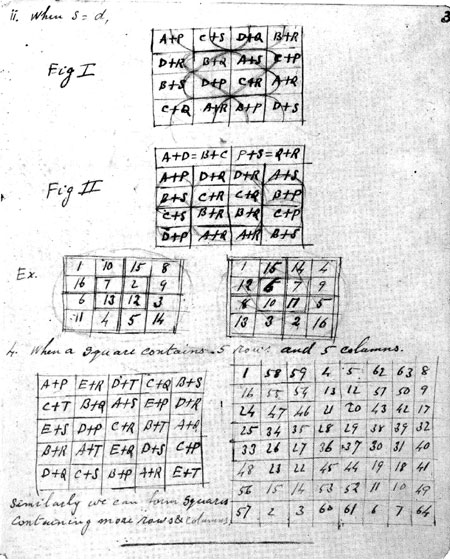 3
ii. When S = d,
Fig I
A+P C+S D+Q B+R
D+R B+Q A+S C+P
B+S D+P C+R A+Q
C+Q A+R B+P D+S
Fig II
A+D=B+C P+S=Q+R
A+P D+Q D+R A+S
B+S C+R C+Q B+P
C+S B+R B+Q C+P
D+P A+Q A+R
Ex.
1 10 15 8
16 7 2 9
6 13 12 3
11 4 5 14
1 15 14 4
12 6 7 9
8 10 11 5
13 3 2 16
4. When a square contains 5 rows and 5 columns.
A+P E+R D+T C+Q B+S
C+T B+Q A+S E+P D+R
E+S D+P C+R B+T A+Q
B+R A+T E+Q D+S C+P
D+Q C+S B+P A+R E+T
Similarly we can form squares
containing more rows & columns
1 58 59 4 5 62 63 8
16 55 54 13 12 51 50 9
24 47 46 21 20 43 42 17
25 34 35 28 29 38 39 32
33 26 27 36 37 30 31 40
48 23 22 45 44 19 18 41
56 15 14 53 52 11 10 49
57 2 3 60 61 6 7 64